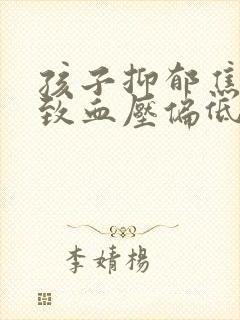 孩子抑郁焦
致血壓偏低
李婧楊